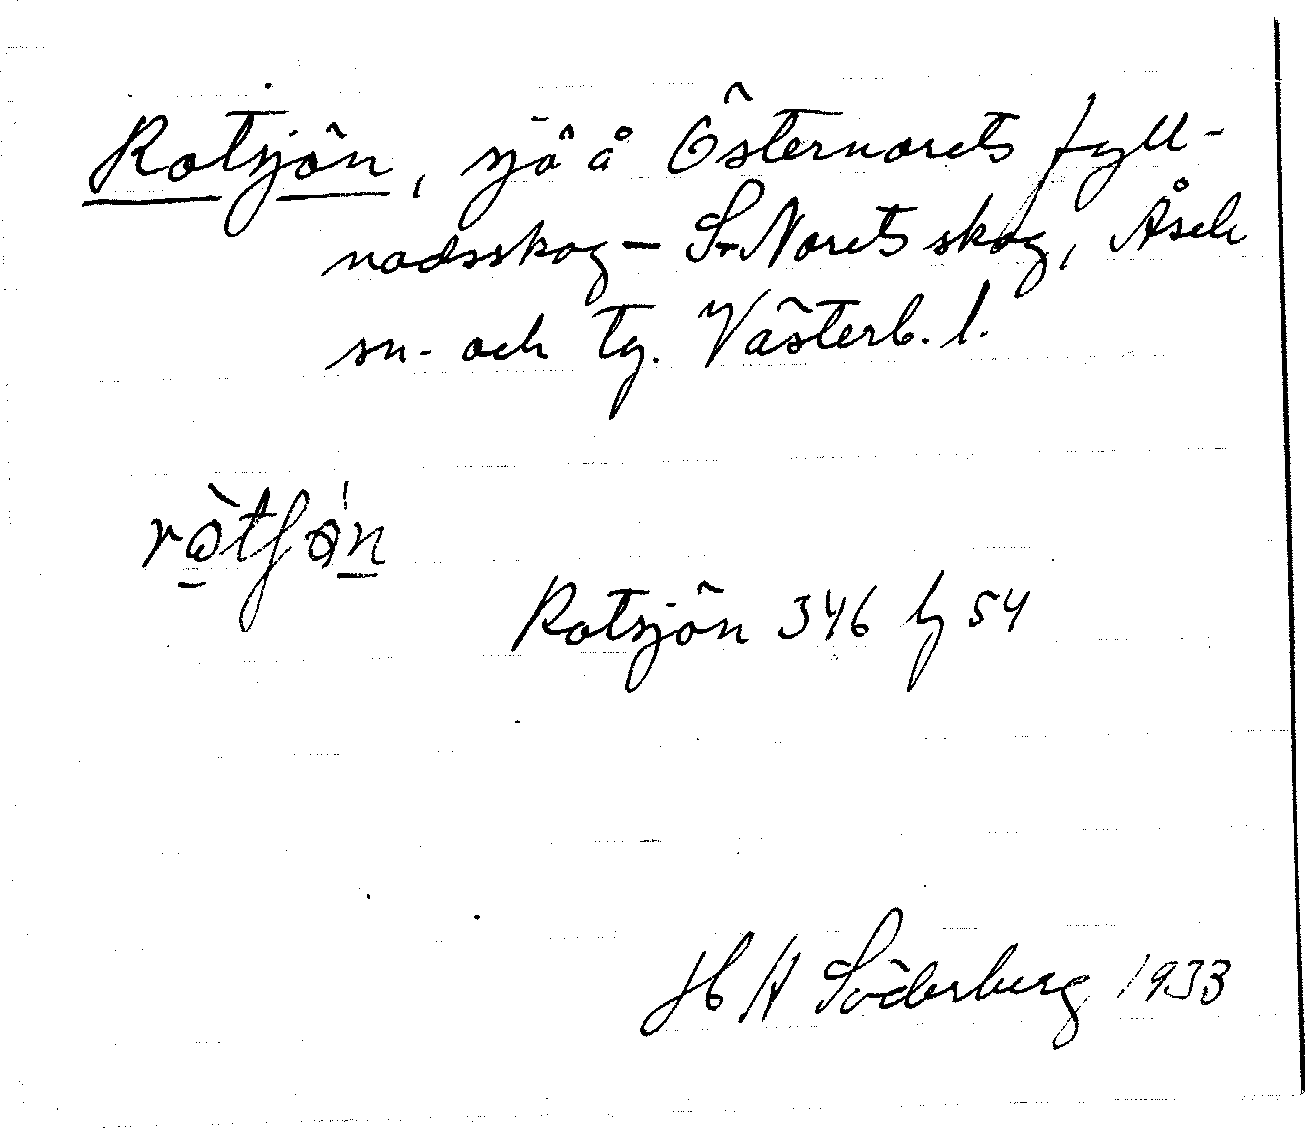 Rotsjön, sjö å Östernorets fyll-
nadsskog – S. Norets skog, Åsele
sn. och tg. Västerb. l.
Rotsjön 346 hj 54
H A Söderberg 1933